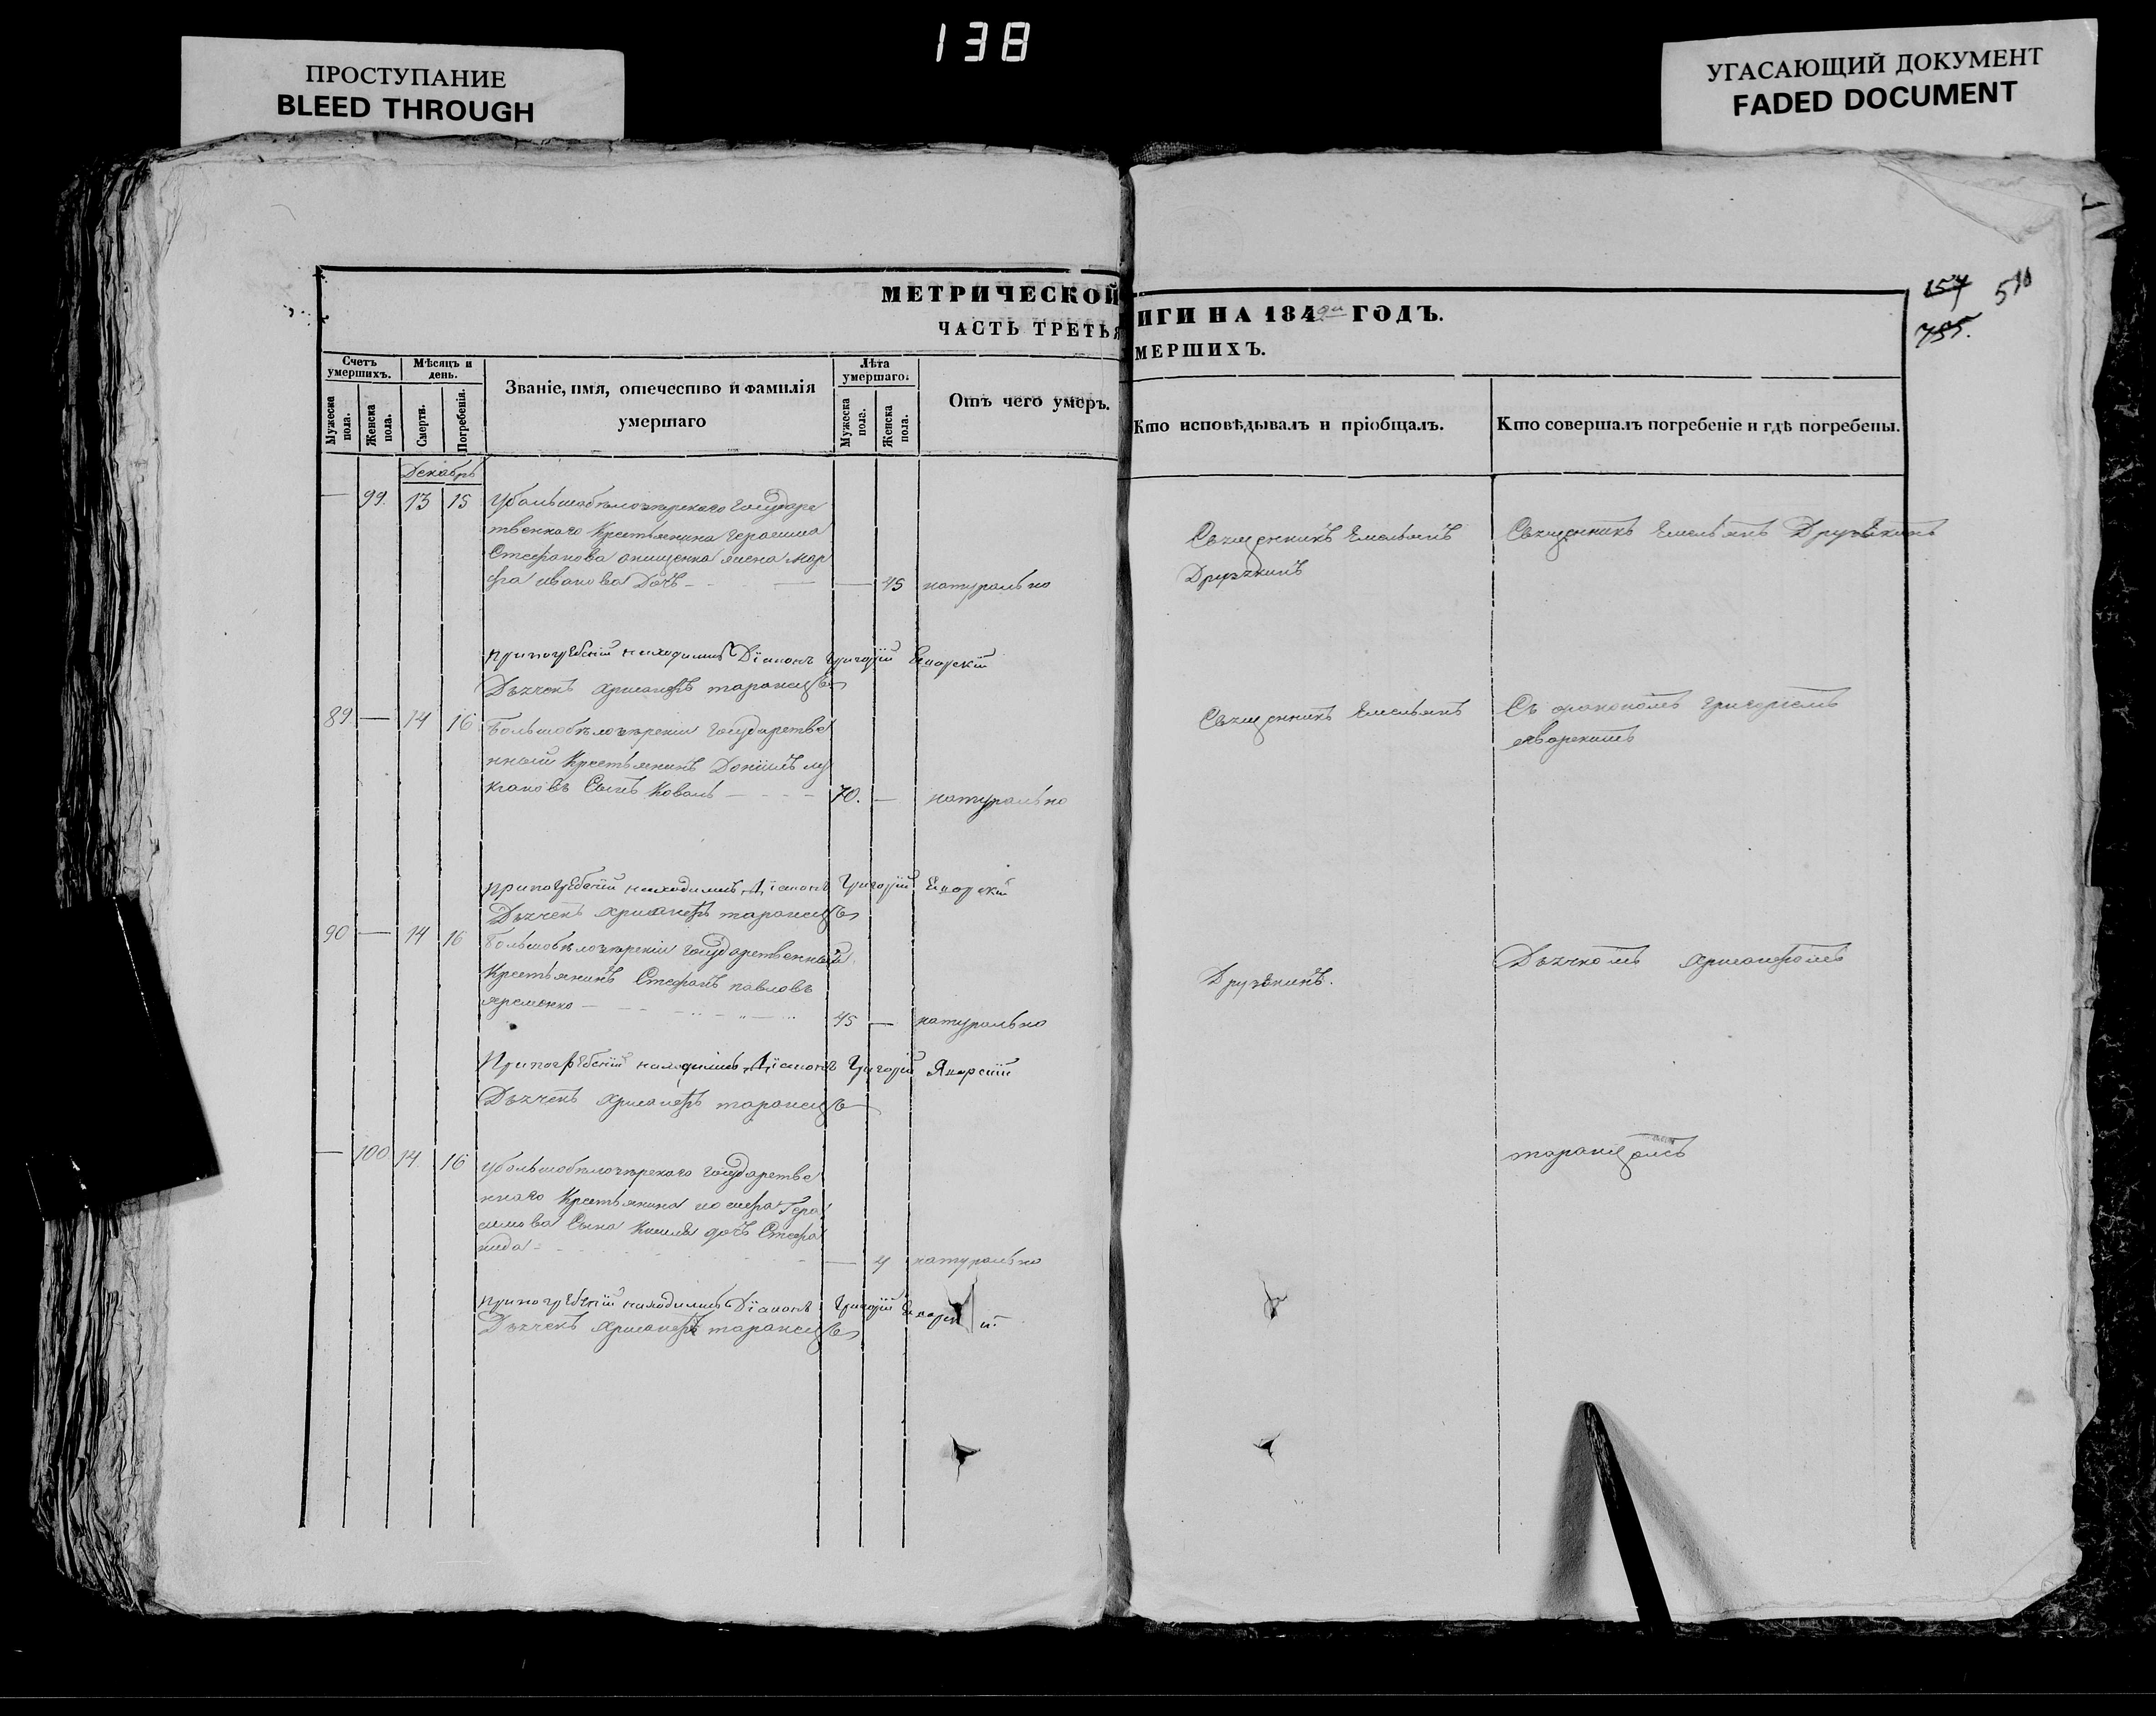 138
ПРОСТУПАНИЕ
BLEED THROUGH
УГАСАЮЩИЙ ДОКУМЕНТ
FADED DOCUMENT
510
157
755.
МЕТРИЧЕСКОЙ
ИГИ НА 1849 ГОДЪ.
ЧАСТЬ ТРЕТЬЯ
МЕРШИХЪ.
Счетъ умершихъ.
Мужеска пола.
Женска пола.
Мѣсяцъ и день.
Смерти.
Погребенія.
Званіе, имя, отечество и фамилія
умершаго
Лѣта умершаго.
Мужеска пола.
Женска пола.
Отъ чего умеръ.
Кто исповѣдывалъ и пріобщалъ.
Кто совершалъ погребеніе и гдѣ погребены.
Декабрь
— 99. 13 15 Убольшобѣлозѣрскаго государс
твеннаго Крестьянина Герасима
Стефанова онищенка жена мар
фа иванова Дочь — — 45 натурально
Священникъ Емельянъ
Дружкинъ
Священникъ Емельянъ Дружкинъ
припогребеніи находились Діаконъ Григорій
Дьячекъ
89 — 14 16 Большобѣлозѣрскій государстве
нный Крестьянинъ Даніилъ лу
кановъ Сынъ Коваль — 70. — натурально
Священникъ Емельянъ
Съ Григоріемъ
припогребеніи находились Діаконъ Григорій
Дьячекъ
90 — 14 16 Большобѣлозѣрскій государственный
Крестьянинъ Стефанъ павловъ
яременко — 45 — натурально
Дружкинъ.
Дьячкомъ
Припогребеніи находились Діаконъ Григорій Якорскій
Дьячекъ
— 100 14 16 Убольшобѣлозѣрскаго государстве
ннаго Крестьянина иосифа Гера
симова Сына дочь Стефа
нида — — 4 натурально
припогребеніи находились Діаконъ Григорій
Дьячекъ